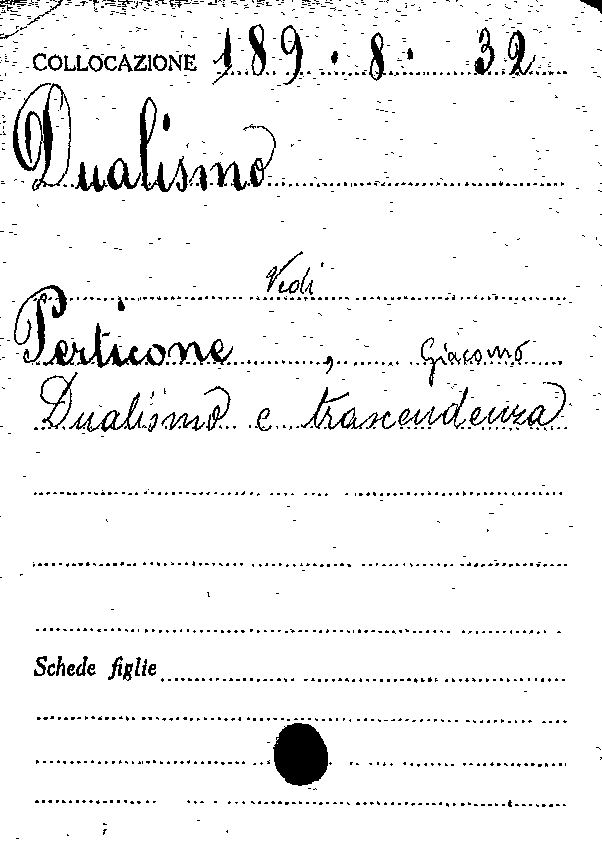 COLLOCAZIONE 189.8. 32
Dualismo
Vedi
Perticone, Giacomo
Dualismo e trascendenza
Schede figlie